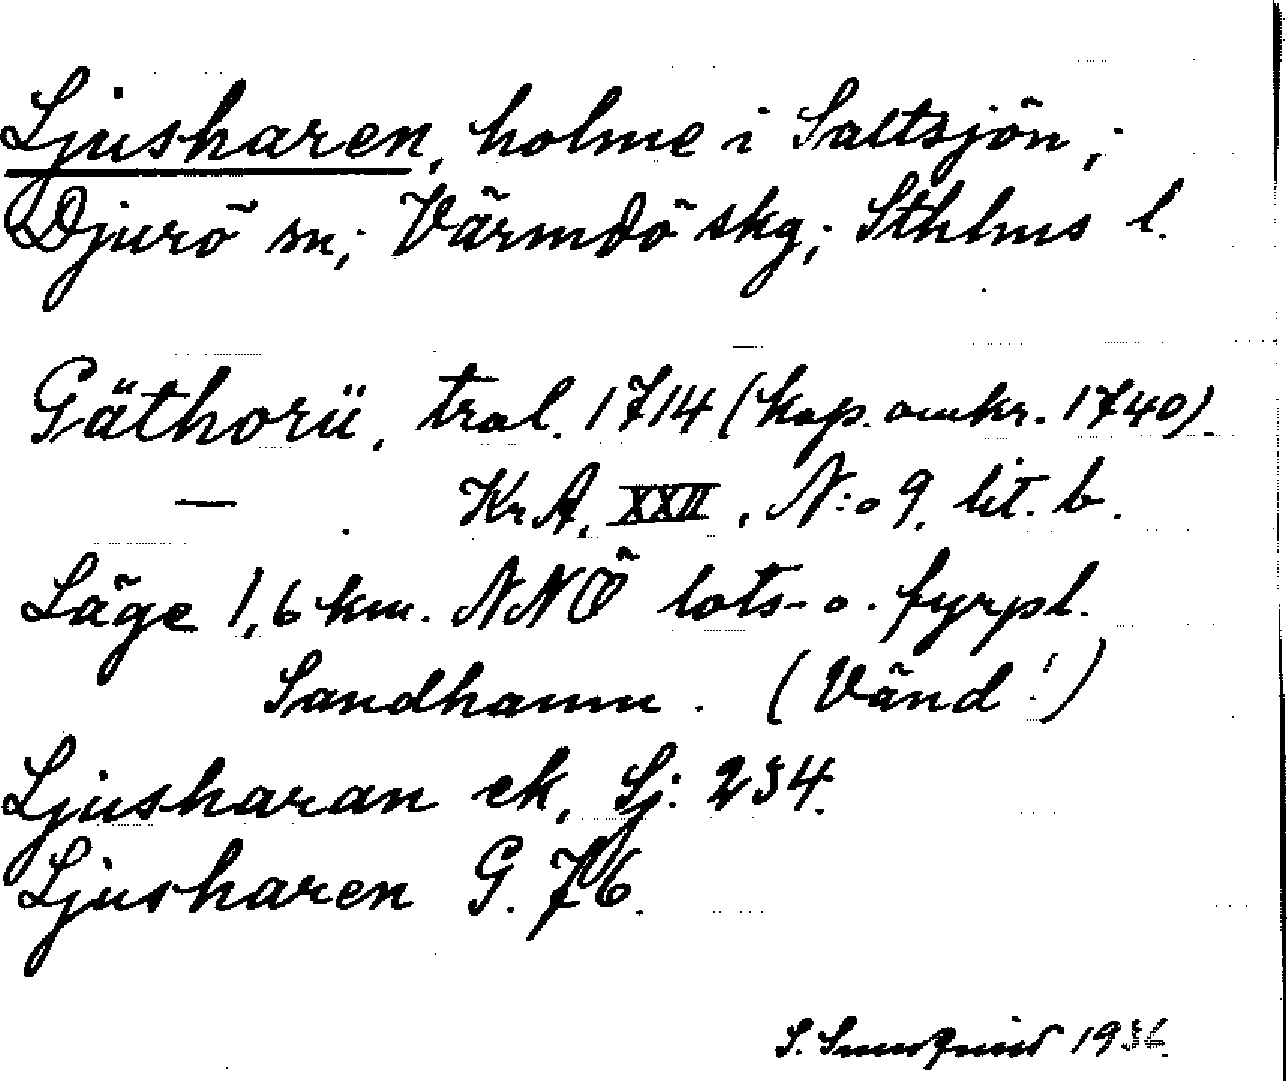 Ljusharen, holme i Saltsjön;
Djurö sn; Värmdö skg; Sthlms l.
Gäthorü, tral. 1714 (kop. omkr. 1740).
— . KrA, XXII, N:o 9, lit. b.
Läge 1,6 km. NNÖ lots- o. fyrpl.
Sandhamn. (Vänd!)
Ljusharan ek, Sj: 234.
Ljusharen G. 76.
S. 1936.